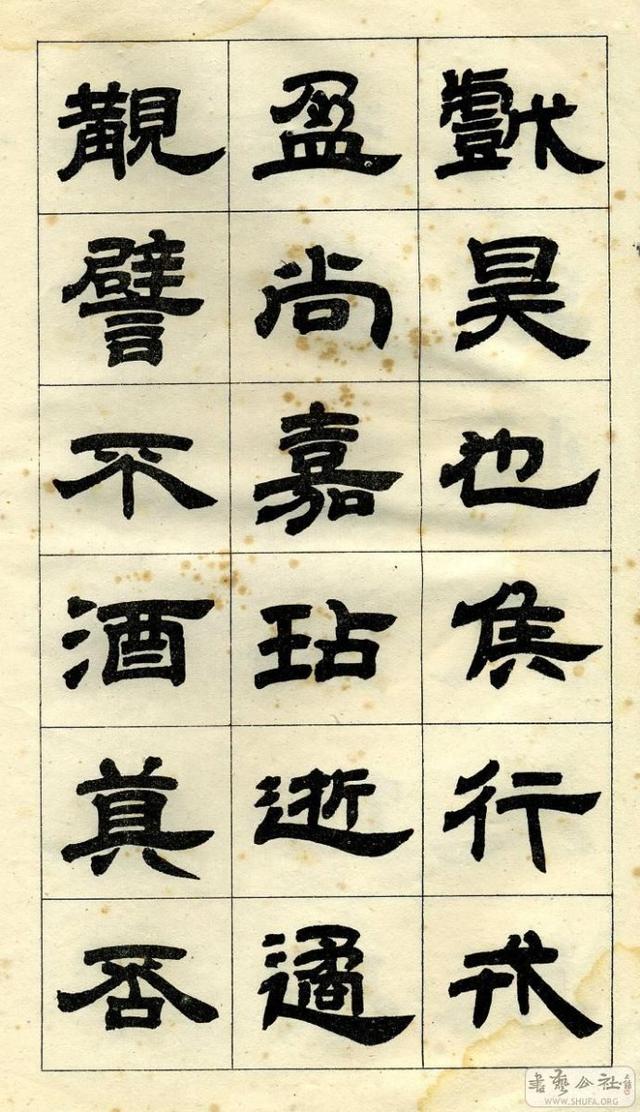 戲昊也行戎
盈尚嘉玷逝遹
覲譬不酒真否
書藝公社
WWW.SHUFA.ORG